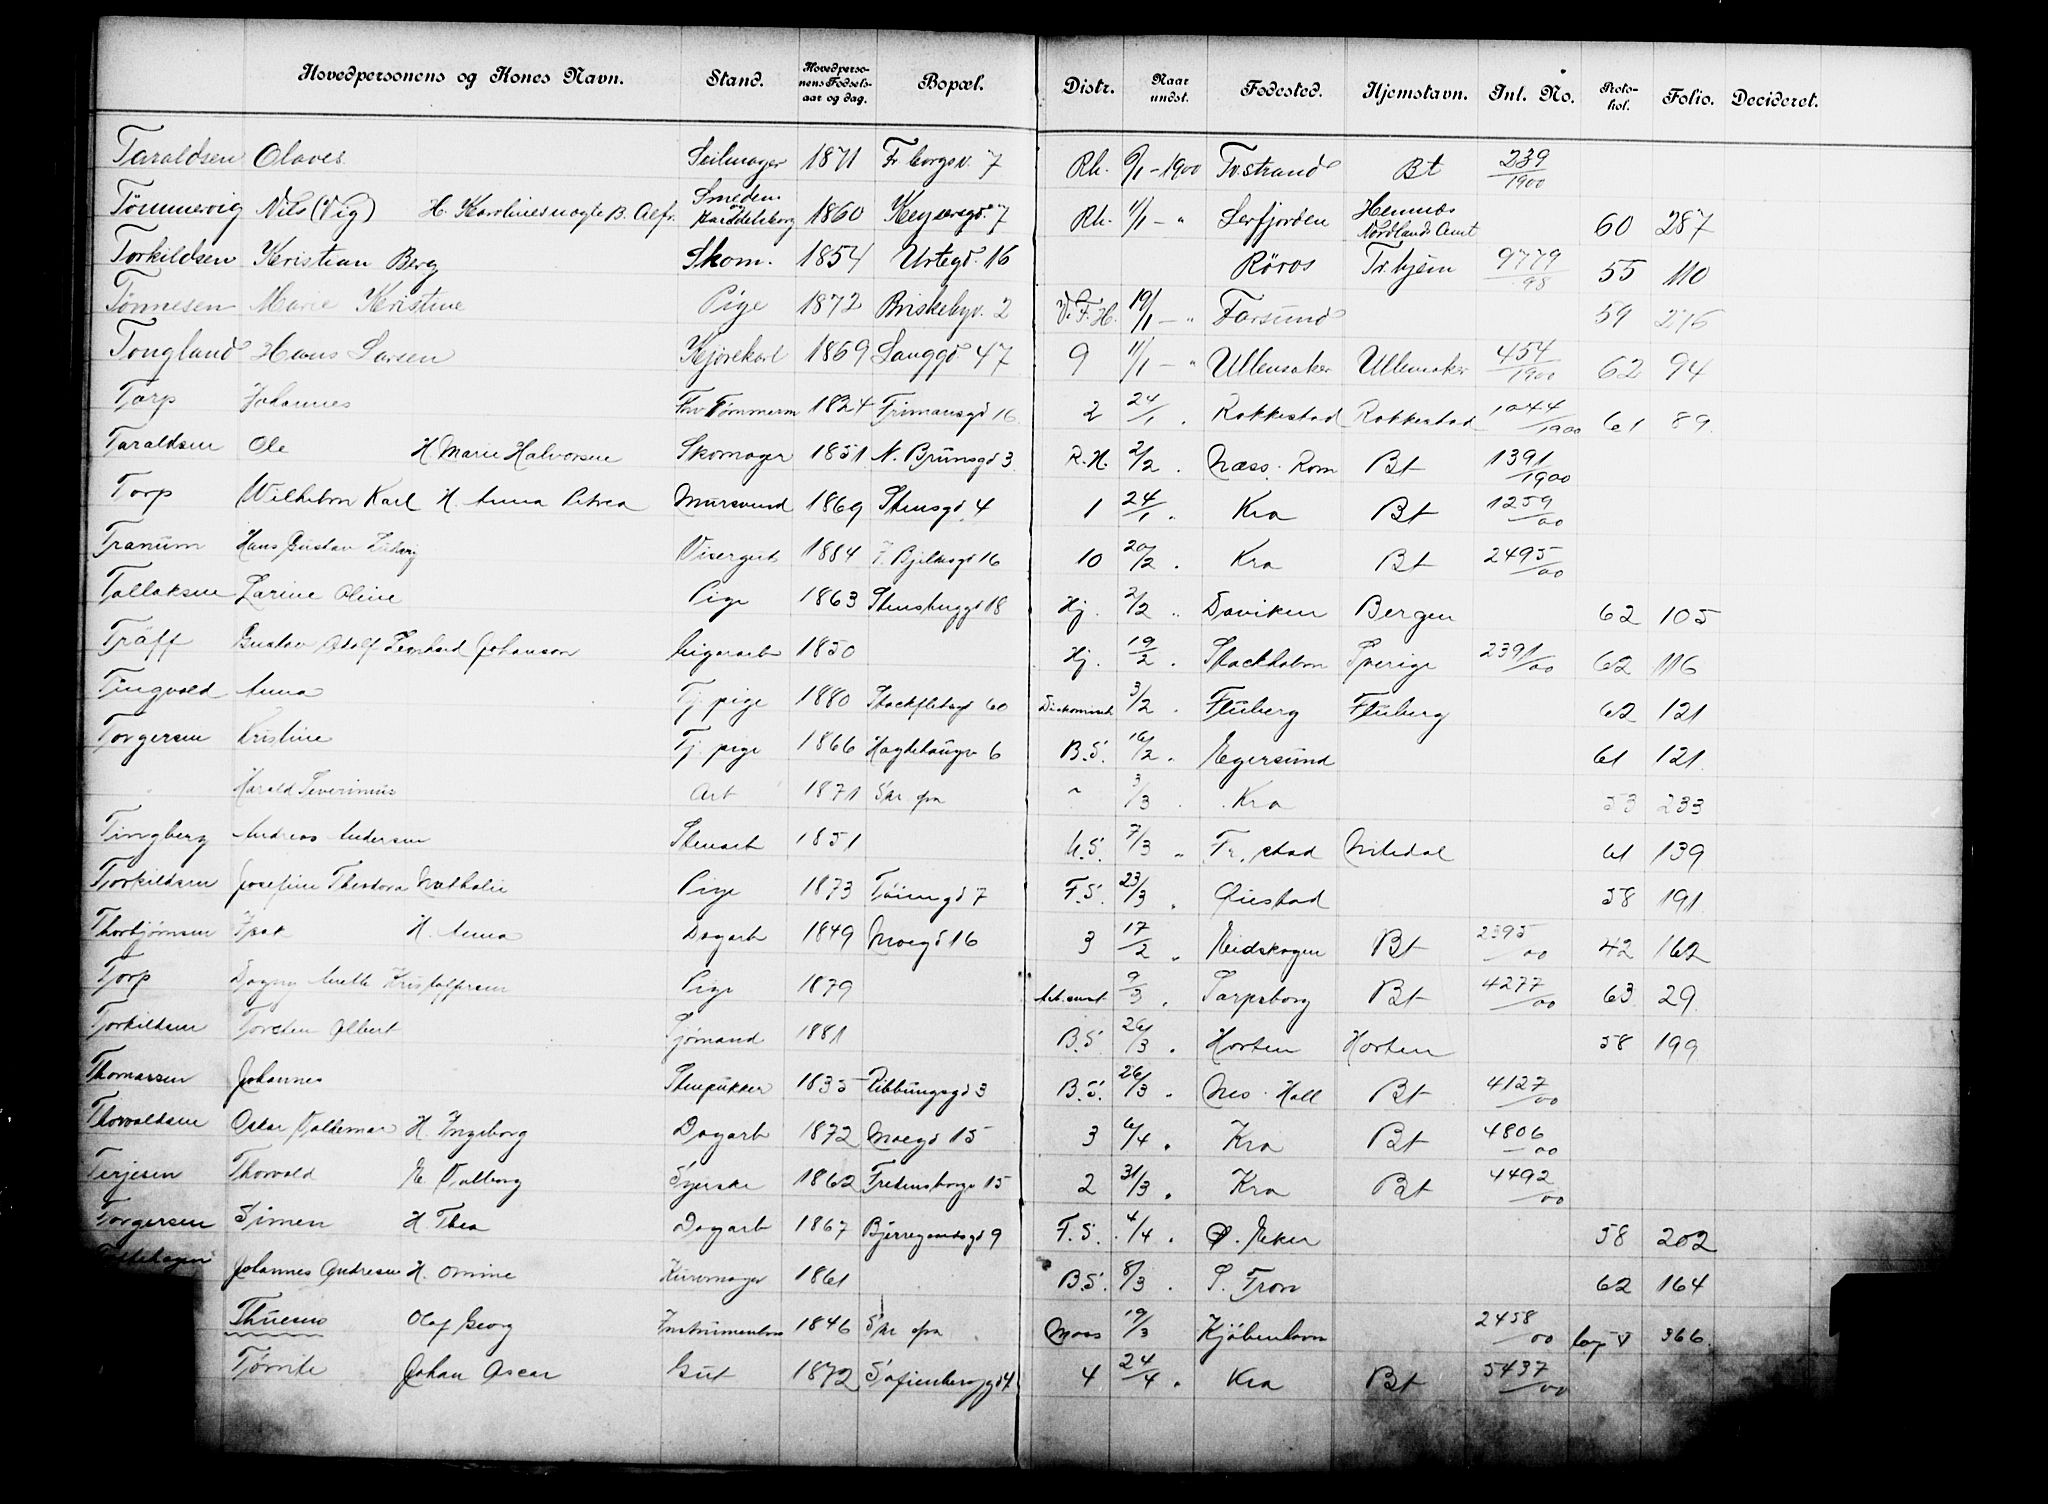 Hovedpersonens og Kones Navn. Stand. Hovedpersonens Fødselsaar og dag. Bopæl. Distr. Naar undst. Fødested. Hjemstavn. Inl. No. Protokol. Folio. Decideret.
Taraldsen Olaves Seilmager 1871 Fr borgsv. 7 Rh. 6/1 - 1900 Tv.strand Bt 239/1900
Tømmervig Nils (Vig) H. Karolines 1860 Keysersgd. 7 Rh. 11/1 - " Hemnæs Nordlands Amt 60 287
Torkildsen Kristian Berg Skom. 1854 Urtegd. 16 Røros Tr.hjem 9779/98 55 110
Tønnesen Marie Kristine Pige 1872 Briskebyv. 2 V.F.H. 19/1 - " Farsund 59 216
Tongland Hans Larsen Kjørekarl 1869 Langgd 47 9 11/1 - " Ullensaker Ullensaker 454/1900 62 94
Torp Johannes Fhv Tømmerm 1824 Frimansgd 16 2 24/1 . Rakkestad Rakkestad 1044/1900 61 89
Taraldsen Ole H Marie Halvorsen Skomager 1851 N. Brunsgd 3 R.H. 2/2 . Næss. Rom Bt 1391/1900
Torp Wilhelm Karl H. Anna Petrea Mursvend 1869 Stensgd. 4 1 24/1 . Kra Bt 1259/00
Tranum Hans Gustav Ludvig Visergut 1884 J. Bjelkesgd 16 10 20/2 . Kra Bt 2495/00
Tallaksen Larine Oline Pige 1863 Stensbuggd 18 Hj. 2/2 " Daviken Bergen 62 105
Träff Gustav Adolf Leonhard Johanson Cigararb 1850 Hj. 19/2 . Stockholm Sverige 2391/00 62 116
Tingvold Anna Tj. pige 1880 Stockfletsgd 60 Diakonissh 3/2 . Fluberg Fluberg 62 121
Torgersen Kristine Tj. pige 1866 Hagtehaugv 6 B.S. 16/2 . Egersund 61 121
Harald Severinus Arb 1871 Skr fra " 3/3 . Kra 53 233
Tingberg Andreas Andersen Stenarb 1851 U.S. 7/3 " Fr.stad Nitedal 61 139
Torkildsen Josefine Theodora Nathalie Pige 1873 Tøiengd 7 F.S. 23/3 . Øiestad 58 191
Thorbjørnsen Isak H. Anna Dagarb 1849 Moegd 16 3 17/2 " Eidskogen Bt 2395/00 42 162
Torp Dagny Anette Kristoffersen Pige 1879 9/3 . Sarpsborg Bt 4277/00 63 29
Torkildsen Torsten Albert Sjømand 1881 B.S. 26/3 . Horten Horten 58 199
Thomassen Johannes Stenpukker 1835 Ribbungsgd 3 B.S. 26/3 . Nes. Hall Bt 4127/00
Thorvaldsen Oskar Valdemar H. Ingeborg Dagarb 1872 Moegd 15 3 6/4 . Kra Bt 4806/00
Terjesen Thorvald E Valborg Syerske 1862 Fredensborgv 15 2 31/3 . Kra Bt 4492/00
Torgersen Simen H. Thea Dagarb 1867 Bjerregaardsgd 9 F.S. 4/4 . Ø. Eker 58 202
Johannes Andresen H. Omine Kurvmager 1861 B.S. 8/3 . S. Fron 62 164
Thuesen Olaf Georg 1846 Skr fra Moss 19/3 Kjøbenhavn 2458/00 366
Tørrite Johan Oscar Gut 1872 Sofienberggd 4 4 24/4 " Kra Bt 5437/00